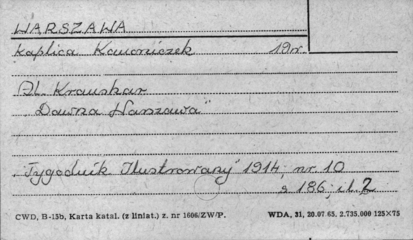 WARSZAWA
kaplica Kanoniczek 19w.
Al. Kraushar
„Dawna Warszawa"
„Tygodnik Ilustrowany" 1914, nr. 10
s 186; il. 2
CWD, B-15b, Karta katal. (z liniat.) z. nr 1606/ZW/P. WDA, 31, 20.07 65, 2.735.000 125×75